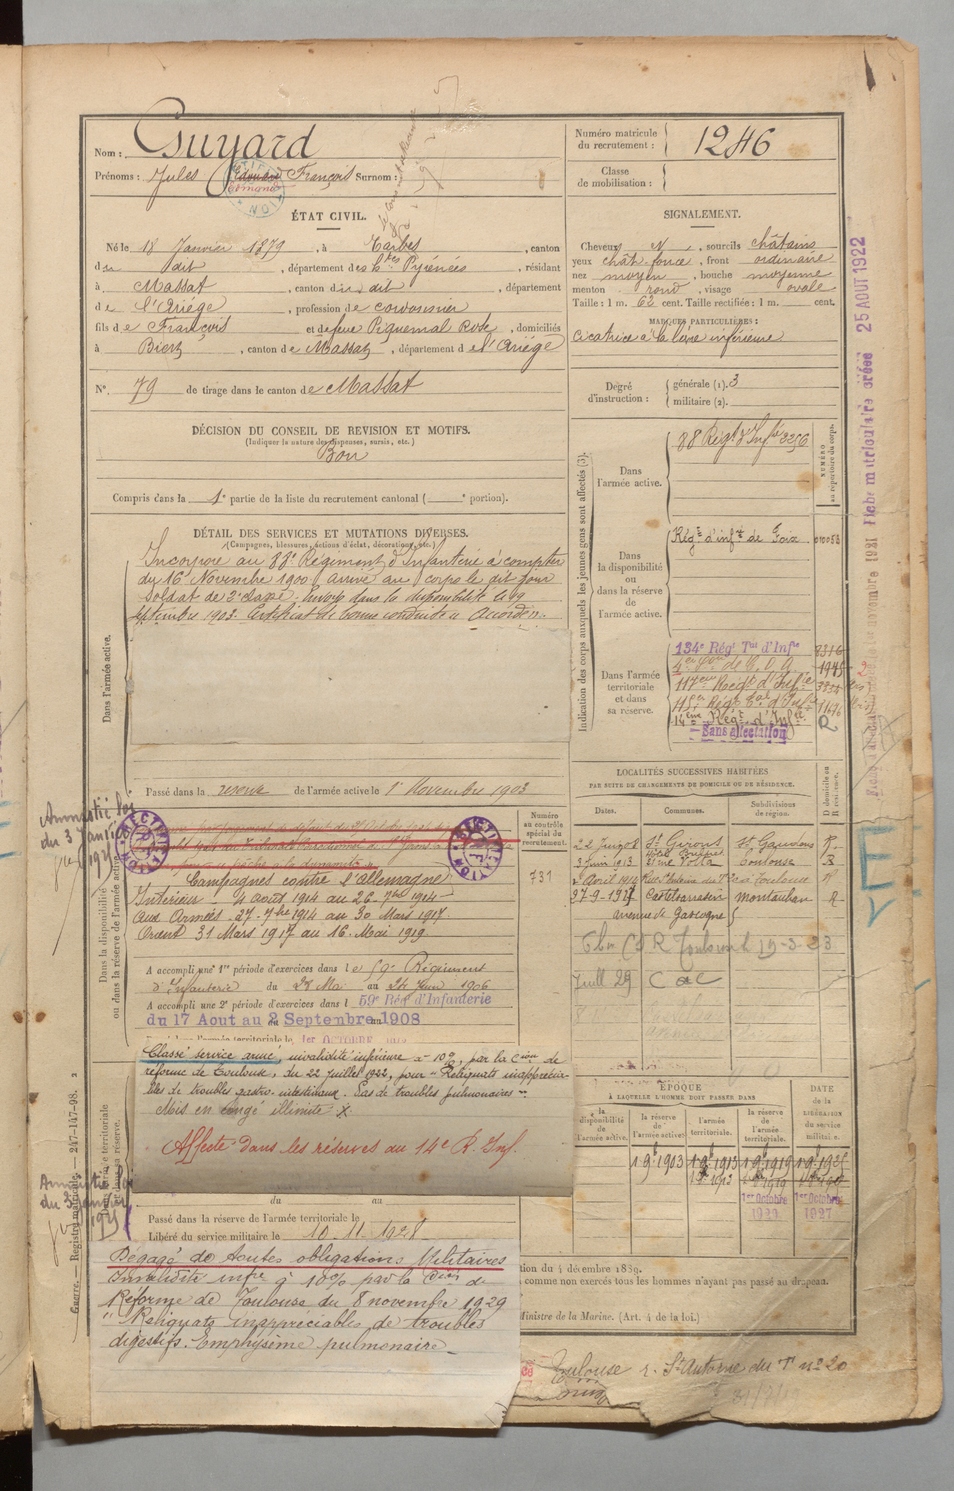 Nom : Guyard
Prénoms : Jules Edmond François Surnom :
Numéro matricule du recrutement : 1246
Classe de mobilisation :
ÉTAT CIVIL.
Né le 18 Janvier 1879, à Tarbes, canton
du dit, département des Htes Pyrénées, résidant
à Massat, canton du dit, département
de l'Ariège, profession de cordonnier
fils de François et de feue Piquemal Rose, domiciliés
à Biert, canton de Massat, département de l'Ariège
N° 79 de tirage dans le canton de Massat
SIGNALEMENT.
Cheveux N, sourcils châtains
yeux chât. foncé, front ordinaire
nez moyen, bouche moyenne
menton rond, visage ovale
Taille : 1 m. 62 cent. Taille rectifiée : 1 m. cent.
MARQUES PARTICULIÈRES :
Cicatrice à la lèvre inférieure
Degré d'instruction : générale (1). 3
militaire (2).
DÉCISION DU CONSEIL DE REVISION ET MOTIFS.
(Indiquer la nature des dispenses, sursis, etc.)
Bon
Compris dans la 1e partie de la liste du recrutement cantonal ( e portion).
DÉTAIL DES SERVICES ET MUTATIONS DIVERSES.
(Campagnes, blessures, actions d'éclat, décorations, etc.)
Dans l'armée active.
Incorporé au 88e Régiment d'Infanterie à compter
du 16 Novembre 1900 arrivé au corps le dit jour
Soldat de 2e classe. Envoyé dans la disponibilité le 19
Septembre 1903. Certificat de bonne conduite "Accordé".
Passé dans la réserve de l'armée active le 1er Novembre 1903
Indication des corps auxquels les jeunes gens sont affectés (3).
NUMÉRO au répertoire du corps.
Dans l'armée active.
88 Régt d'Infie 3256
Dans la disponibilité ou dans la réserve de l'armée active.
Régt d'infie de Foix 01005B
Dans l'armée territoriale et dans sa réserve.
134e Régt Tal d'Infie 8316
117eme Regt d'Infie
115e Régt Tal d'Infie
14eme Régt d'Infie R
Sans affectation
Fiche matriculaire créée 25 AOUT 1922
LOCALITÉS SUCCESSIVES HABITÉES
PAR SUITE DE CHANGEMENTS DE DOMICILE OU DE RÉSIDENCE.
Dates. Communes. Subdivisions de région. D domicile ou R résidence.
22 Juin 08 St Girons St Gaudens R
3 Juin 1913 Toulouse R
2 Avril 1914 Toulouse R
27-9-1917 Castelsarrasin Montauban R
avenue de Gascogne
Amnistié Loi
du 3 Janvier
1925
RECTIFICATION
RECTIFICATION
Numéro au contrôle spécial du recrutement.
731
Dans la disponibilité ou dans la réserve de l'armée active
Campagnes contre l'Allemagne
Intérieur - 4 août 1914 au 26-7bre 1914 -
Aux Armées - 27-7bre 1914 au 30 Mars 1917.
Orient 31 Mars 1917 au 16 Mai 1919.
A accompli une 1re période d'exercices dans le 59e Régiment
d'Infanterie du 28 Mai au 24 Juin 1906
A accompli une 2e période d'exercices dans l 59e Rég d'Infanterie
du 17 Aout au 2 Septembre 1908
Classé service armé, invalidité inférieure à 10%, par la Cion de
réforme de Toulouse, du 22 Juillet 1922, pour "Reliquats inapprécia-
bles de troubles gastro-intestinaux. Pas de troubles pulmonaires".
Mis en congé illimité
Affecté dans les réserves au 14e R. Inf.
ÉPOQUE
A LAQUELLE L'HOMME DOIT PASSER DANS
la disponibilité de l'armée active. la réserve de l'armée active. l'armée territoriale. la réserve de l'armée territoriale. DATE de la LIBÉRATION du service militaire.
1 9bre 1903 1 9bre 1913 1 9bre 1919 1 9bre 1925
1er Octobre 1er Octobre 1927
Amnistié Loi
du 3 Janvier
1925
du au
Passé dans la réserve de l'armée territoriale le
Libéré du service militaire le 10-11-1928
Dégagé de toutes obligations Militaires
Invalidité infre à 10% par la Cion de
Réforme de Toulouse du 8 novembre 1929
"Reliquats inappréciables de troubles
digestifs. Emphysème pulmonaire
tion du 4 décembre 1889.
comme non exercés tous les hommes n'ayant pas passé au drapeau.
Ministre de la Marine. (Art. 4 de la loi.)
Toulouse r. St Antoine du T n° 20
Guerre. — Registre matricule. — 247-147-98.